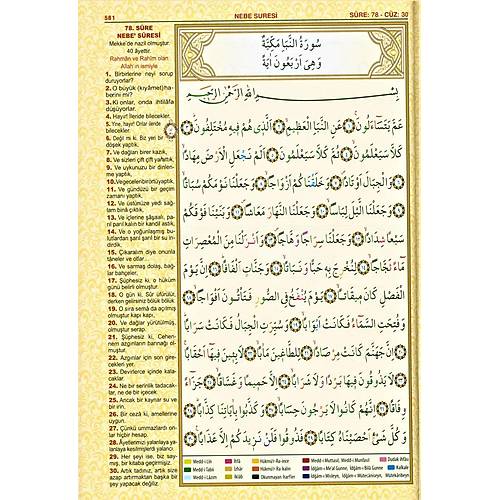 581
NEBE SURESİ
SÛRE: 78 - CÜZ: 30
78. SÛRE
NEBE' SÛRESİ
Mekke'de nazil olmuştur.
40 âyettir.
Rahmân ve Rahîm olan
Allah'ın ismiyle
1. Birbirlerine neyi sorup
duruyorlar?
2. O büyük (kıyâmet) ha-
berini mi?
3. Ki onlar, onda ihtilâfa
düşüyorlar.
4. Hayır! İleride bilecekler.
5. Yine, hayır! Onlar ileride
bilecekler.
6. Değil mi ki, Biz yeri bir
döşek yaptık,
7. Ve dağları birer kazık,
8. Ve sizleri çift çift yarattık,
9. Ve uykunuzu bir dinlen-
me yaptık,
10. Ve geceleri bir örtü yaptık,
11. Ve gündüzü bir geçim
zamanı yaptık,
12. Ve üstümüze yedi sağ-
lam binâ çıktık,
13. Ve içlerine şâşaalı, pa-
rıl parıl kalın bir kandil astık,
14. Ve o yoğunlaşmış bu-
lutlardan şarıl şarıl bir su in-
dirdik,
15. Çıkaralım diye onunla
tâneler ve otlar...
16. Ve sarmaş dolaş, bağ-
lar bahçeler,
17. Şüphesiz ki, o hüküm
günü belirli olmuştur.
18. O gün ki, Sûr üfürülür,
derken gelirsiniz bölük bölük
19. O sıra semâ da açılmış
olmuştur kapı kapı,
20. Ve dağlar yürütülmüş,
olmuştur serap.
21. Şüphesiz ki, Cehen-
nem azgınların barınağı ol-
muştur.
22. Azgınlar için son gire-
cekleri yer.
23. Devirlerce içinde kala-
caklar.
24. Ne bir serinlik tadacak-
lar, ne de bir içecek
25. Ancak bir kaynar su ve
bir irin.
26. Bir ceza ki, amellerine
uygun.
27. Çünkü ummazlardı on-
lar hiçbir hesap.
28. Âyetlerimizi yalanlaya
yalanlaya kesilmişlerdi yalancı
29. Her şeyi ise, biz say-
mış, bir kitaba geçirmişiz.
30. Artık tadınız, artık size
azap artırmaktan başka bir
şey yapacak değiliz.
سُورَةُ النَّبَإِ مَكِّيَّةٌ
وَهِيَ اَرْبَعُونَ اٰيَةً
بِسْمِ اللّٰهِ الرَّحْمٰنِ الرَّحِيمِ
عَمَّ يَتَسَٓاءَلُونَ ١ عَنِ النَّبَاِ الْعَظِيمِ ٢ اَلَّذِي هُمْ فِيهِ مُخْتَلِفُونَ ٣
كَلَّا سَيَعْلَمُونَ ٤ ثُمَّ كَلَّا سَيَعْلَمُونَ ٥ اَلَمْ نَجْعَلِ الْاَرْضَ مِهَادًا ٦
وَالْجِبَالَ اَوْتَادًا ٧ وَخَلَقْنَاكُمْ اَزْوَاجًا ٨ وَجَعَلْنَا نَوْمَكُمْ سُبَاتًا ٩
وَجَعَلْنَا الَّيْلَ لِبَاسًا ١٠ وَجَعَلْنَا النَّهَارَ مَعَاشًا ١١ وَبَنَيْنَا فَوْقَكُمْ
سَبْعًا شِدَادًا ١٢ وَجَعَلْنَا سِرَاجًا وَهَّاجًا ١٣ وَاَنْزَلْنَا مِنَ الْمُعْصِرَاتِ
مَٓاءً ثَجَّاجًا ١٤ لِنُخْرِجَ بِهِ حَبًّا وَنَبَاتًا ١٥ وَجَنَّاتٍ اَلْفَافًا ١٦ اِنَّ يَوْمَ
الْفَصْلِ كَانَ مِيقَاتًا ١٧ يَوْمَ يُنْفَخُ فِي الصُّورِ فَتَأْتُونَ اَفْوَاجًا ١٨
وَفُتِحَتِ السَّمَٓاءُ فَكَانَتْ اَبْوَابًا ١٩ وَسُيِّرَتِ الْجِبَالُ فَكَانَتْ سَرَابًا ٢٠
اِنَّ جَهَنَّمَ كَانَتْ مِرْصَادًا ٢١ لِلطَّاغِينَ مَاٰبًا ٢٢ لَابِثِينَ فِيهَٓا اَحْقَابًا ٢٣
لَا يَذُوقُونَ فِيهَا بَرْدًا وَلَا شَرَابًا ٢٤ اِلَّا حَمِيمًا وَغَسَّاقًا ٢٥ جَزَٓاءً
وِفَاقًا ٢٦ اِنَّهُمْ كَانُوا لَا يَرْجُونَ حِسَابًا ٢٧ وَكَذَّبُوا بِاٰيَاتِنَا كِذَّابًا ٢٨
وَكُلَّ شَيْءٍ اَحْصَيْنَاهُ كِتَابًا ٢٩ فَذُوقُوا فَلَنْ نَزِيدَكُمْ اِلَّا عَذَابًا ٣٠
Medd-i Lîn İhfâ Hükmü'r-Ra-ince Medd-i Muttasıl, Medd-i Munfasıl Dudak ihfâsı
Medd-i Tabii İzhâr Hükmü'r-Ra kalın İdğam-ı Me'al Gunne, İdğam-ı Bilâ Gunne Kalkale
Medd-i Lâzım İklâb Okunmayan harfler İdğam-ı Misleyn, İdğam-ı Mütecâniseyn, Mütekâribeyn